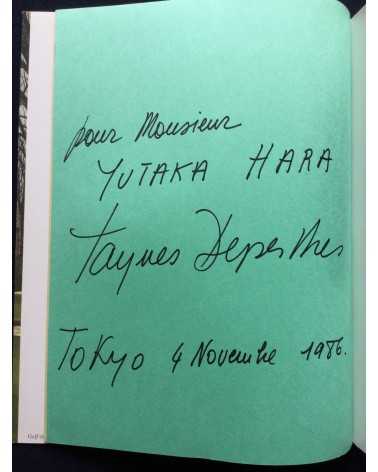 pour Monsieur
YUTAKA HARA
Jaques Deperthes
Tokyo 4 Novembre 1986.